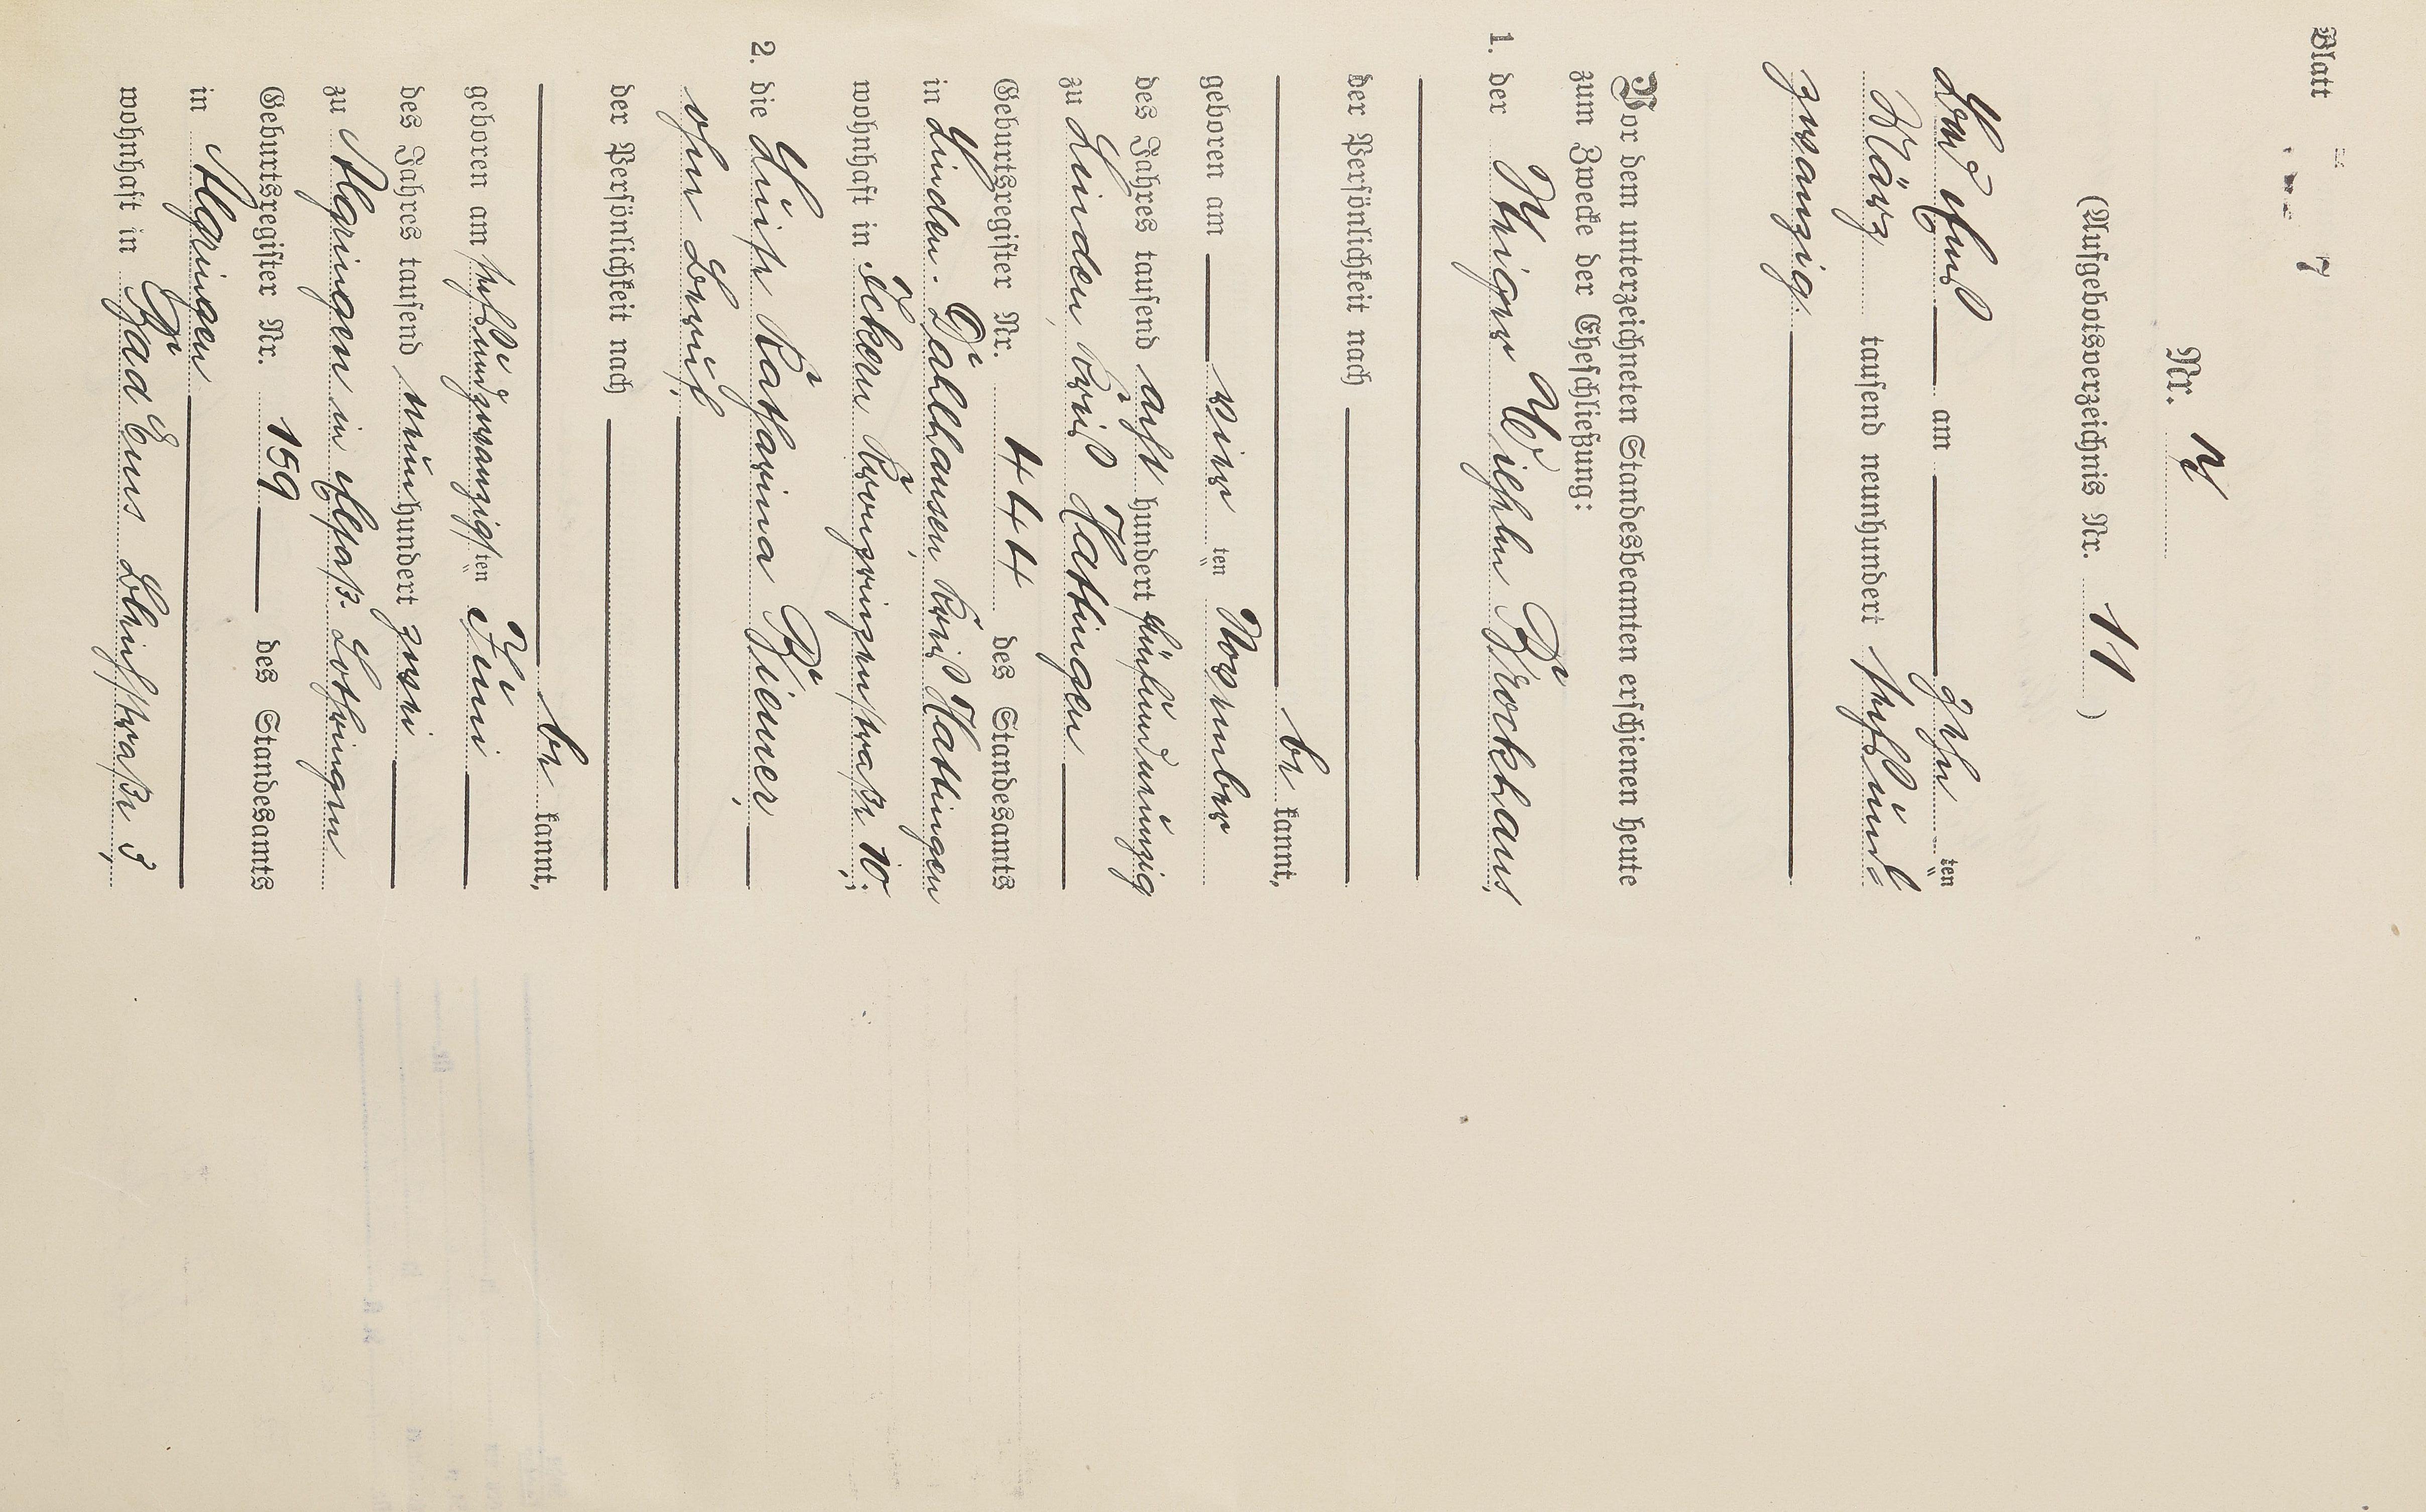 Blatt 7
Nr. 7
(Aufgebotsverzeichnis Nr. 11)
Bad Ems am zehnten
März tausend neunhundert sechsund=
zwanzig.
Vor dem unterzeichneten Standesbeamten erschienen heute
zum Zwecke der Eheschließung:
1. der Steiger Wilhelm Brockhaus,
der Persönlichkeit nach
be kannt,
geboren am vier ten November
des Jahres tausend acht hundert fünfundneunzig
zu Linden, Kreis Hattingen
Geburtsregister Nr. 444 des Standesamts
in Linden-Dahlhausen, Kreis Hattingen
wohnhaft in Ickern Kronprinzenstraße 10.;
2. die Luise Katharina Biewer,
ohne Beruf,
der Persönlichkeit nach
be kannt,
geboren am sechsundzwanzigsten Juni
des Jahres tausend neun hundert zwei
zu Algringen in Elsaß-Lothringen
Geburtsregister Nr. 159 des Standesamts
in Algringen
wohnhaft in Bad Ems Bleichstraße 3,